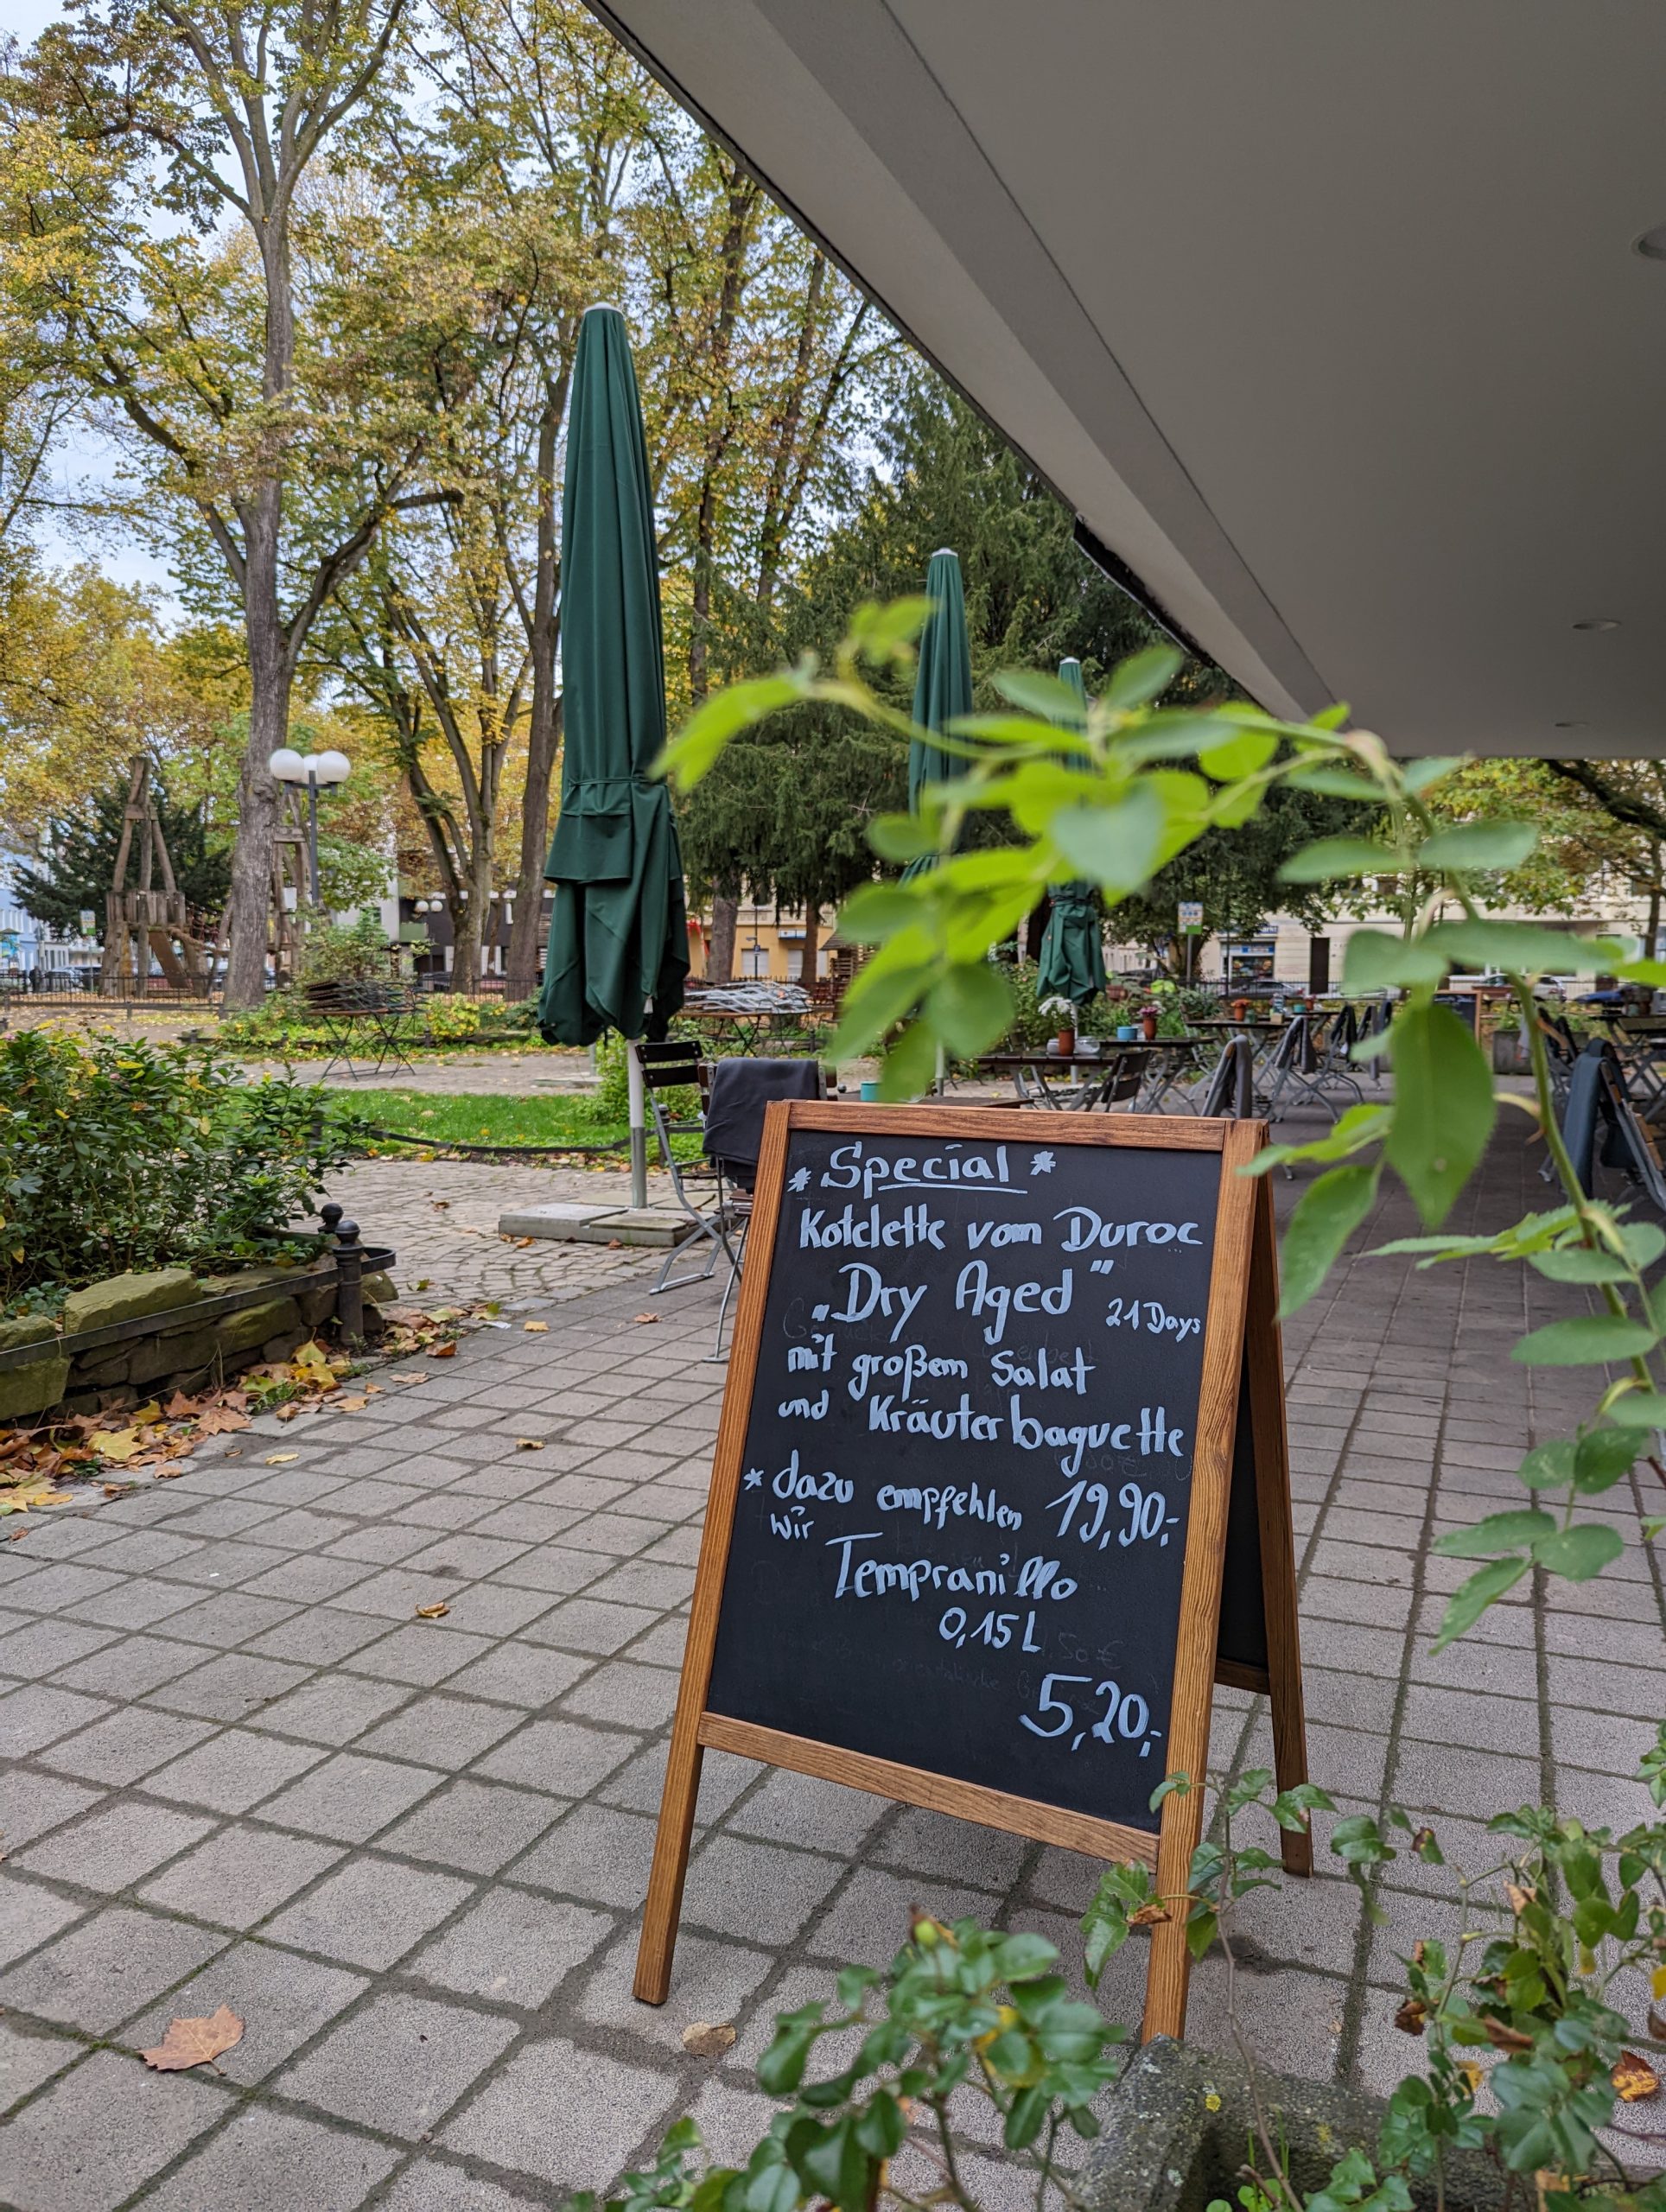 * Special *
Kotelette vom Duroc
„Dry Aged" 21 Days
mit großem Salat
und Kräuterbaguette
* dazu empfehlen 19,90,-
wir
Tempranillo
0,15L
5,20,-